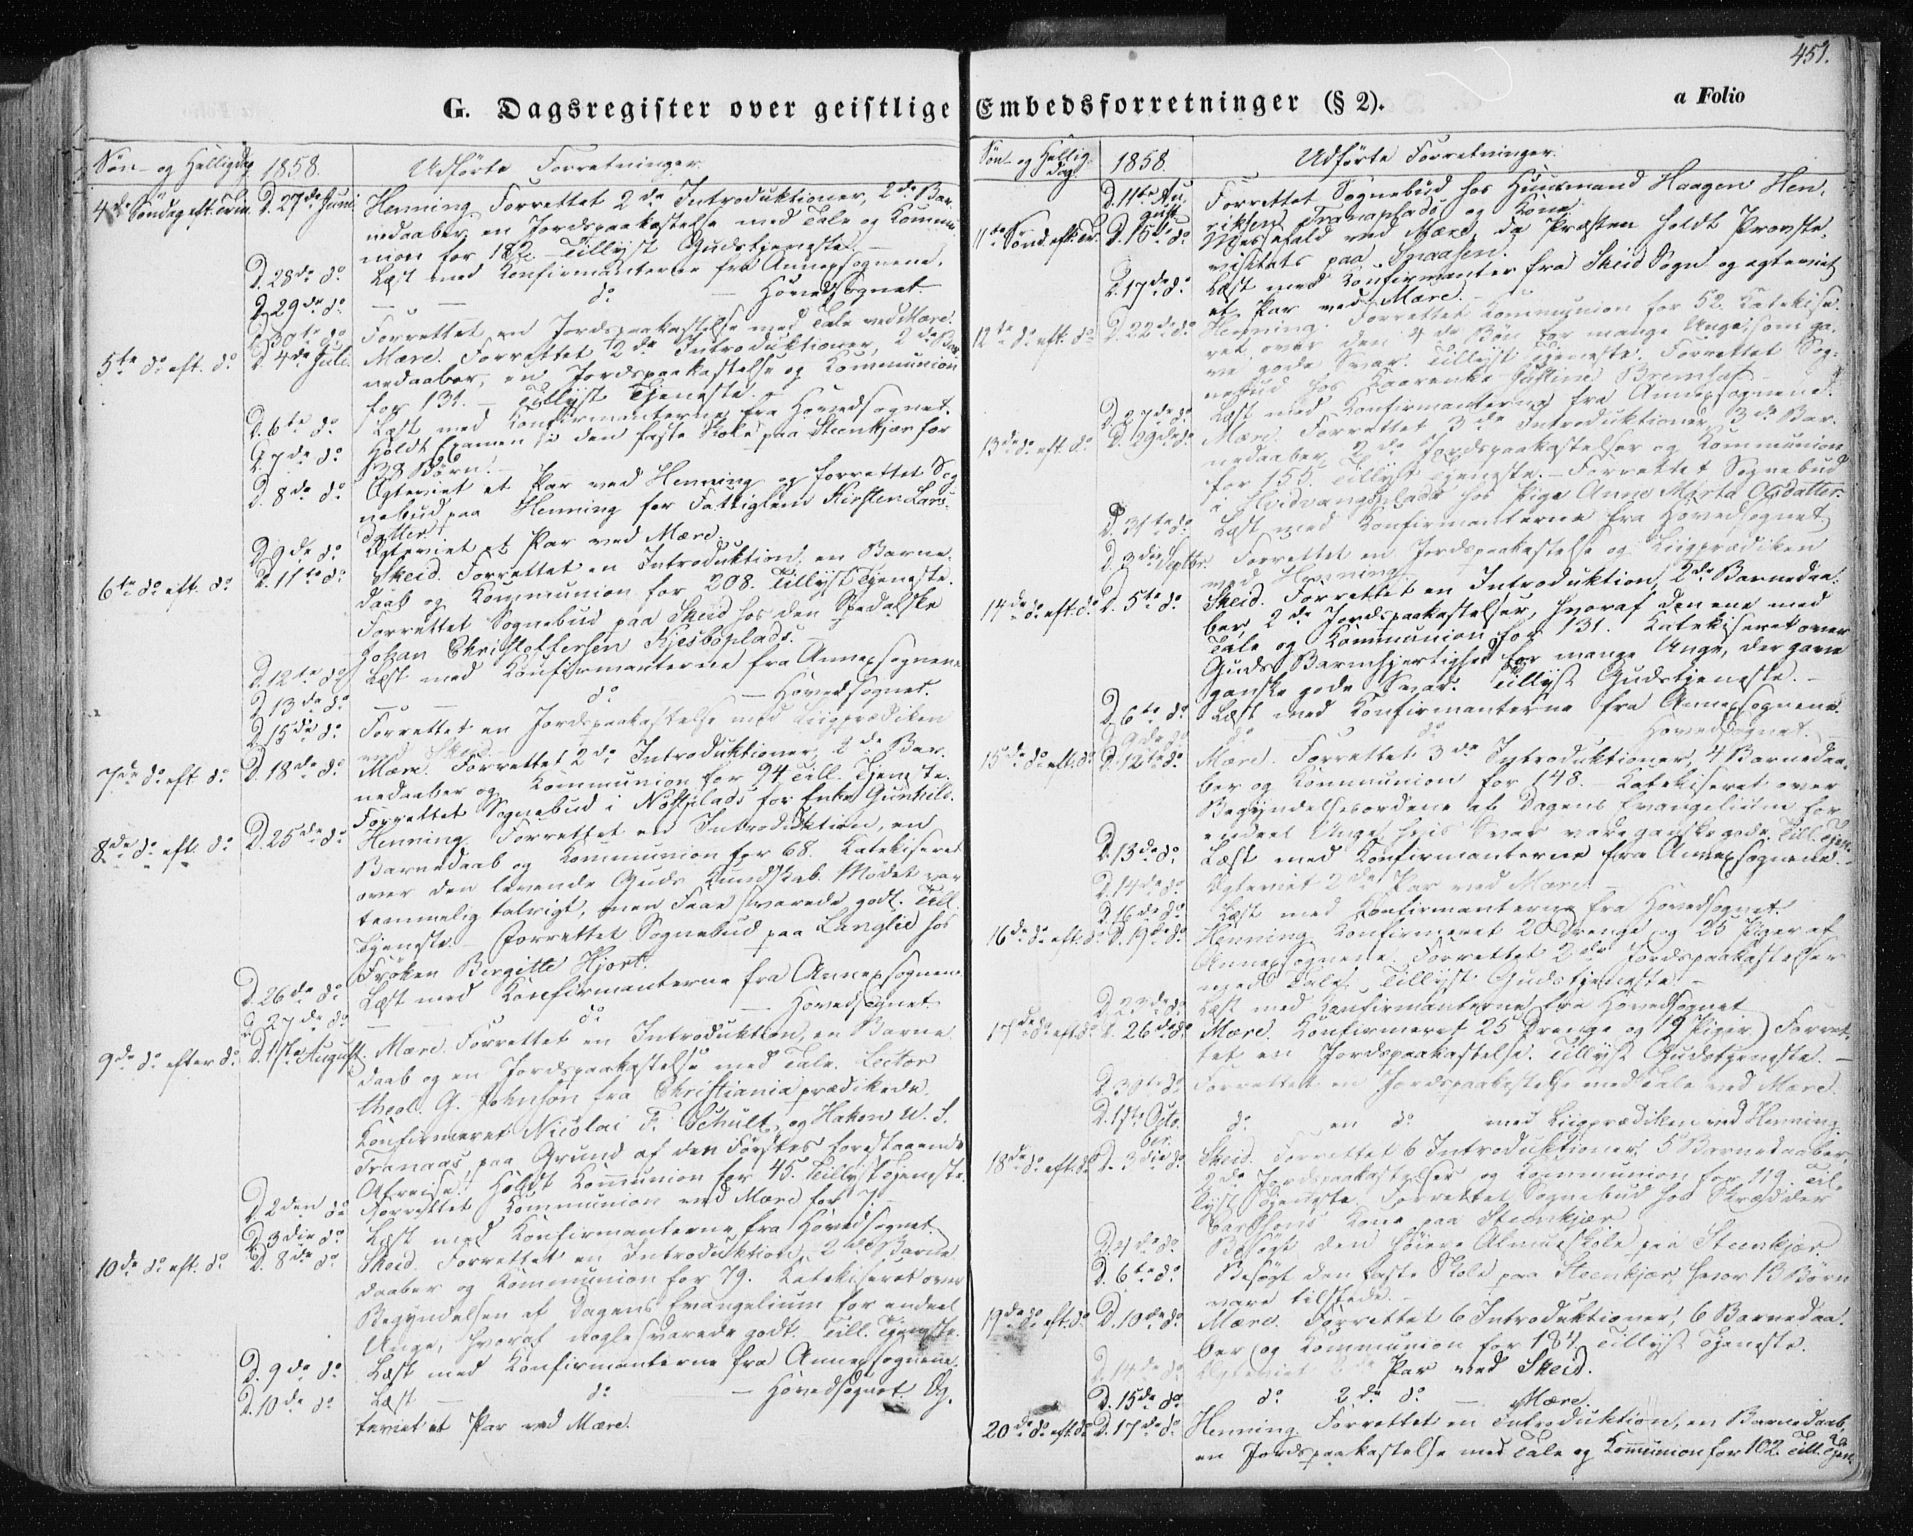 451.
G. Dagsregister over geistlige Embedsforretninger (§ 2).
a Folio
Søn- og Helligdag 1858. Udførte Forretninger.
4de Søndag eft. Trin. D. 27de Juni. Henning. Forrettet 2de Introduktioner, 2de Bar-
nedaaber, en Jordspaakastelse med Tale og Kommu-
nion for 182. Tillyst Gudstjeneste. –
D. 28de do Læst med Konfirmanterne fra Annexsognene.
D. 29de do — — do — Hovedsognet.
D. 30te do Forrettet en Jordspaakastelse med Tale ved Mære.
5te do eft. do D. 4de Juli. Mære. Forrettet 2de Introduktioner, 2de Bar-
nedaaber, en Jordspaakastelse og Kommunion
for 131. – Tillyst Tjeneste. –
D. 6te do Læst med Konfirmanterne fra Hovedsognet.
D. 7de do Holdt Examen i den faste Skole paa Steenkjær for
38 Børn. –
D. 8de do Ægteviet et Par ved Henning og forrettet Sog-
nebud paa Henning for Fattiglem Kirsten Lars-
datter.
D. 9de do Ægteviet et Par ved Mære.
6te do eft. do D. 11te do Skeid. Forrettet en Introduktion, en Barne-
daab og Kommunion for 208. Tillyst Tjeneste.
Forrettet Sognebud paa Skeid hos den Spedalske
Johan Christoffersen Kjesboplads. –
D. 12te do Læst med Konfirmanterne fra Annexsognene
D. 13de do — — do — Hovedsognet.
D. 15de do Forrettet en Jordspaakastelse med Liigprædiken
ved Skeid.
7de do eft. do D. 18de do Mære. Forrettet 2de Introduktioner, 2de Bar-
nedaaber og Kommunion for 94. Till. Tjeneste.
Forrettet Sognebud i Nøstplads for Enke Gunhild.
8de do eft. do D. 25de do Henning. Forrettet en Introduktion, en
Barnedaab og Kommunion for 68. Katekiseret
over den levende Guds Kundskab. Mødet var
temmelig talrigt, men Faae svarede godt. Till.
Tjeneste. – Forrettet Sognebud paa Langlie hos
Frøken Birgitte Hjort.
D. 26de do Læst med Konfirmanterne fra Annexsognene
D. 27de do — — do — Hovedsognet.
9de do efter do D. 1ste August. Mære. Forrettet en Introduktion, en Barne-
daab og en Jordspaakastelse med Tale. Lector
theol. G. Johnson fra Christiania prædikede.
Konfirmeret Nicolai F. Schult og Hakon W. S.
Tranaas, paa Grund af den Førstes forestaaende
Afreise. Holdt Kommunion for 45. Tillyst Tjeneste.
D. 2den do Forrettet Kommunion ved Mære for 7. –
D. 3die do Læst med Konfirmanterne fra Hovedsognet.
10de do eft. do D. 8de do Skeid. Forrettet en Introduktion, 2de Barne-
daaber og Kommunion for 79. Katekiseret over
Begyndelsen af Dagens Evangelium for endeel
Unge, hvoraf nogle svarede godt. Till. Tjeneste.
D. 9de do Læst med Konfirmanterne fra Annexsognene.
D. 10de do Læst — do — Hovedsognet. Æg-
teviet et Par ved Mære.
Søn- og Hellig-
dag 1858. Udførte Forretninger.
D. 11te Au-
gust. Forrettet Sognebud hos Huusmand Haagen Hen-
riksen Tranaplads og Kone.
11te Sønd. eft. Tr. D. 15de do Messefald ved Mære, da Præsten holdt Provste-
visitats paa Snaasen.
D. 17de do Læst med Konfirmanter fra Skeid Sogn og ægteviet
et Par ved Mære. –
12te do eft. do D. 22de do Henning. Forrettet Kommunion for 52. Katekise-
ret over den 4de Bøn for mange Unge, som ga-
ve gode Svar. Tillyst Tjeneste. Forrettet Sog-
nebud hos Kaarenke Justine Bremsøs. –
D. 27de do Læst med Konfirmanterne fra Annexsognene.
13de do eft. do D. 29de do Mære. Forrettet 3de Introduktioner, 3de Bar-
nedaaber, 2de Jordspaakastelser og Kommunion
for 155. Tillyst Tjeneste. – Forrettet Sognebud
i Hvidvangsplads hos Pige Anne Marta Olsdatter.
D. 31te do Læst med Konfirmanterne fra Hovedsognet
D. 3die Septbr. Forrettet en Jordspaakastelse og Liigprædiken
ved Henning.
14de do eft. do D. 5te do Skeid. Forrettet en Introduktion, 2de Barnedaa-
ber, 2de Jordspaakastelser, hvoraf den ene med
Tale og Kommunion for 131. Katekiseret over
Guds Barmhjertighed for mange Unge, der gave
ganske gode Svar. Tillyst Gudstjeneste. –
D. 6te do Læst med Konfirmanterne fra Annexsognene.
D. 9de do do do Hovedsognet. –
15de do eft. do D. 12te do Mære. Forrettet 3de Introduktioner, 4 Barnedaa-
ber og Kommunion for 148. Katekiseret over
Begyndelsesordene af Dagens Evangelium for
endeel Unge, hvis Svar vare ganske gode. Till. Tjen.
D. 13de do Læst med Konfirmanterne fra Annexsognene.
D. 14de do Ægteviet 2de Par ved Mære. –
D. 16de do Læst med Konfirmanterne fra Hovedsognet.
16de do eft. do D. 19de do Henning. Konfirmeret 20 Drenge og 25 Piger af
Annexsognene. Forrettet 2de Jordspaakastelser
med Tale. Tillyst Gudstjeneste. –
D. 23de do Læst med Konfirmanterne fra Hovedsognet
17de do eft. do D. 26de do Mære. Konfirmeret 25 Drenge og 19 Piger. Forret-
tet en Jordspaakastelse. Tillyst Gudstjeneste. –
D. 30te do Forrettet en Jordspaakastelse med Tale ved Mære.
D. 1ste Octo-
ber. do en do med Liigprædiken ved Henning.
18de do eft. do D. 3die do Skeid. Forrettet 6 Introduktioner, 5 Barnedaaber,
2de Jordspaakastelser og Kommunion for 119. Til-
lyst Tjeneste. Forrettet Sognebud hos Skrædder
Kone paa Steenkjær
D. 4de do Besøgt den høiere Almueskole paa Steenkjær.
D. 6te do Besøgt den faste Skole paa Steenkjær, hvor 13 Børn
vare tilstede. –
19de do eft. do D. 10de do Mære. Forrettet 6 Introduktioner, 6 Barnedaa-
ber og Kommunion for 184. Tillyst Tjeneste.
D. 14de do Ægteviet Par ved Skeid.
D. 15de do do 2de do — Mære.
20de do eft. do D. 17de do Henning. Forrettet en Introduktion, en Barnedaab,
en Jordspaakastelse med Tale og Kommunion for 102. Till. Tjen.